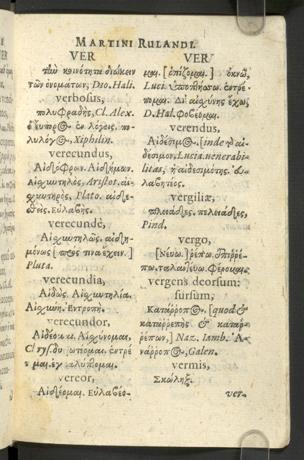 MARTINI RULANDI.
VER
τὴν κοινότητα διώκειν
τῶν ὀνομάτων, Dio. Hali.
verbosus,
πολυφραδὴς, Cl. Alex.
ἐν λόγοις, πο-
λυλόγος, Xiphilin.
verecundus,
Αἰσχυντηλὸς, Aristot. αἰ-
σχυντηρὸς, Plato. αἰδὼ-
Εὐλαβής.
verecundè,
Αἰσχυντηλῶς. αἰδη-
μόνως [πρός τινα ἔχειν.]
Pluta.
verecundia,
Αἰδώς. Αἰσχυντηλία.
Αἰσχύνη. Ἐντροπή.
verecundor,
Αἰδέομαι. Αἰσχύνομαι,
Chrys. ἐντρέ-
πομαι.
vereor,
Εὐλαβέο-
VER
μαι. ὀκνῶ,
Luci. ἐντρέ-
πομαι. Δι' αἰσχύνης ἔχω,
D. Hal. Φοβέομαι.
verendus,
Αἰδέσιμος. [inde τὸ αἰ-
δέσιμον, Lucia. venerabi-
litas, ἡ αἰδεσιμότης.
vergiliæ,
πλειάδες. πελειάδες,
Pind.
vergo,
[Νεύω.] ῥέπω. Ἐπιῤῥέ-
πω. ταλαντεύω. Φέρομαι.
vergens deorsum:
sursum,
Κατάῤῥοπος. [quod &
κατωρεπὴς & καταῤ-
ῥέπων,] Naz. Iamb. Ἀ-
νάῤῥοπος, Galen.
vermis,
Σκώληξ.
ver-